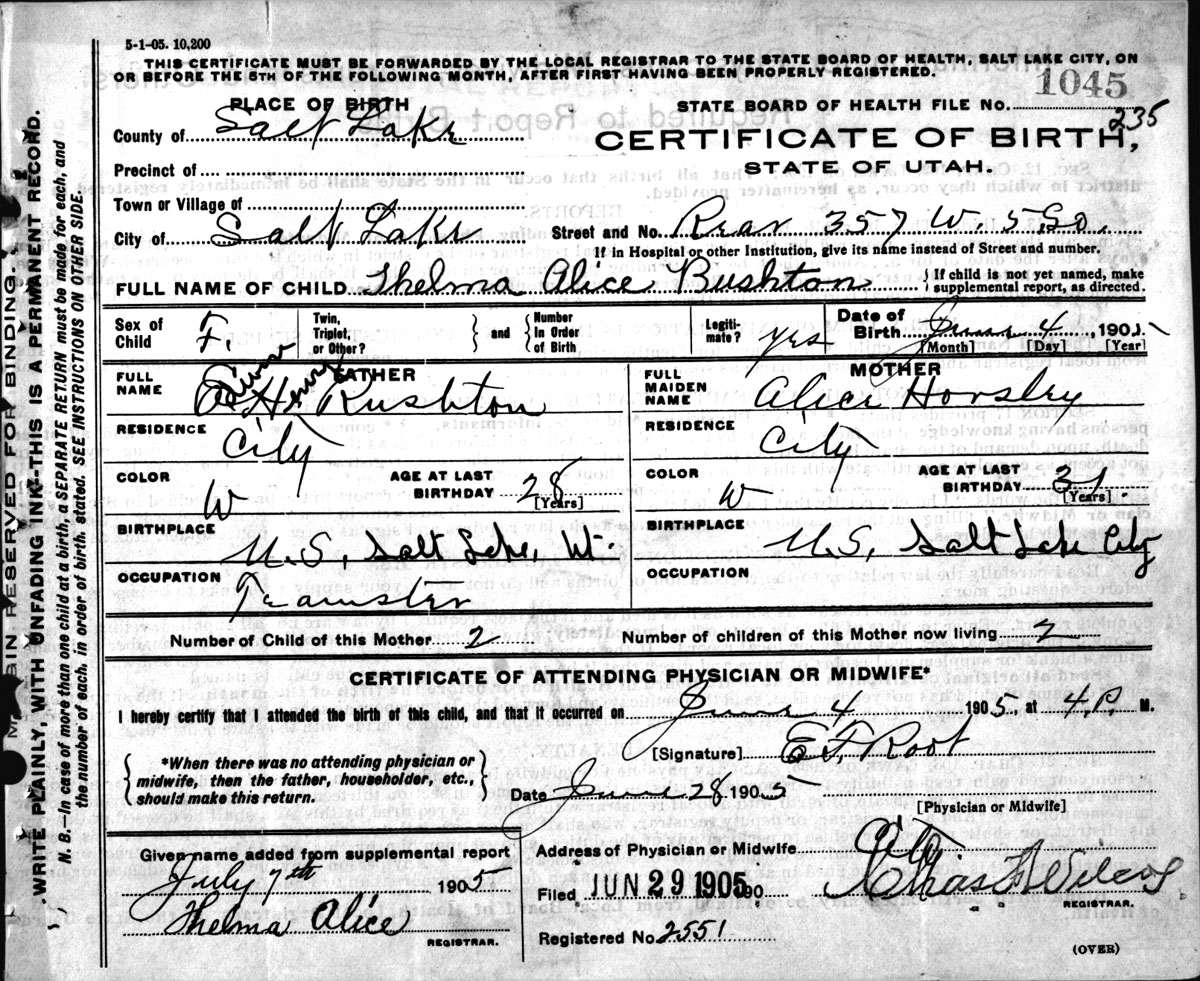 5-1-05. 10,200
THIS CERTIFICATE MUST BE FORWARDED BY THE LOCAL REGISTRAR TO THE STATE BOARD OF HEALTH, SALT LAKE CITY, ON
OR BEFORE THE 5TH OF THE FOLLOWING MONTH, AFTER FIRST HAVING BEEN PROPERLY REGISTERED.
1045
PLACE OF BIRTH
STATE BOARD OF HEALTH FILE NO.
235
County of Salt Lake
CERTIFICATE OF BIRTH,
Precinct of
STATE OF UTAH.
Town or Village of
City of Salt Lake Street and No. Rear 357 W. 5 So.
If in Hospital or other Institution, give its name instead of Street and number.
FULL NAME OF CHILD Thelma Alice Rushton { If child is not yet named, make supplemental report, as directed.
Sex of Child F. Twin, Triplet, or Other? } and { Number In Order of Birth Legiti-mate? yes Date of Birth June 4 1905
[Month] [Day] [Year]
FATHER MOTHER
FULL NAME Rushton FULL MAIDEN NAME Alice Horsley
RESIDENCE City RESIDENCE City
COLOR W AGE AT LAST BIRTHDAY 28 [Years] COLOR W AGE AT LAST BIRTHDAY 31 [Years]
BIRTHPLACE U.S, Salt Lake, Ut. BIRTHPLACE U.S, Salt Lake City
OCCUPATION Teamster OCCUPATION
Number of Child of this Mother 2 Number of children of this Mother now living 2
CERTIFICATE OF ATTENDING PHYSICIAN OR MIDWIFE*
I hereby certify that I attended the birth of this child, and that it occurred on June 4 1905, at 4 P. M.
*When there was no attending physician or
midwife, then the father, householder, etc.,
should make this return.
[Signature] E F Root
Date June 28 1905
[Physician or Midwife]
Given name added from supplemental report
July 7th 1905
Thelma Alice
REGISTRAR.
Address of Physician or Midwife City
Filed JUN 29 1905 190 Chas Wilcox
REGISTRAR.
Registered No. 2551
(OVER)
MARGIN RESERVED FOR BINDING.
WRITE PLAINLY, WITH UNFADING INK--THIS IS A PERMANENT RECORD.
N. B.—In case of more than one child at a birth, a SEPARATE RETURN must be made for each, and
the number of each, in order of birth, stated. SEE INSTRUCTIONS ON OTHER SIDE.